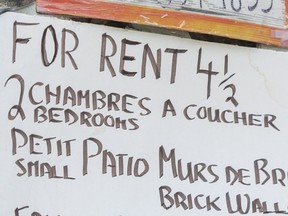 FOR RENT 4½
2 CHAMBRES A COUCHER
BEDROOMS
PETIT PATIO MURS DE
SMALL BRICK